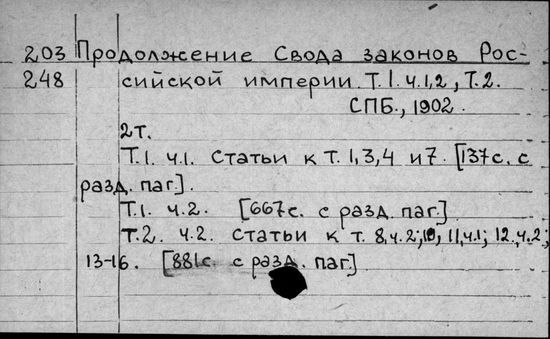 203 Продолжение Свода законов Рос-
248 сийской империи. Т.1. ч.1,2, Т.2.
СПБ., 1902.
2т.
Т.1. ч.1. Статьи к т. 1,3,4 и 7. [137с. с
разд. паг.].
Т.1. ч.2. [667с. с разд. паг.]
Т.2. ч.2. Статьи к т. 8,ч.2; 10, 11,ч.1; 12,ч.2;
13-16. [881с. с разд. паг.]